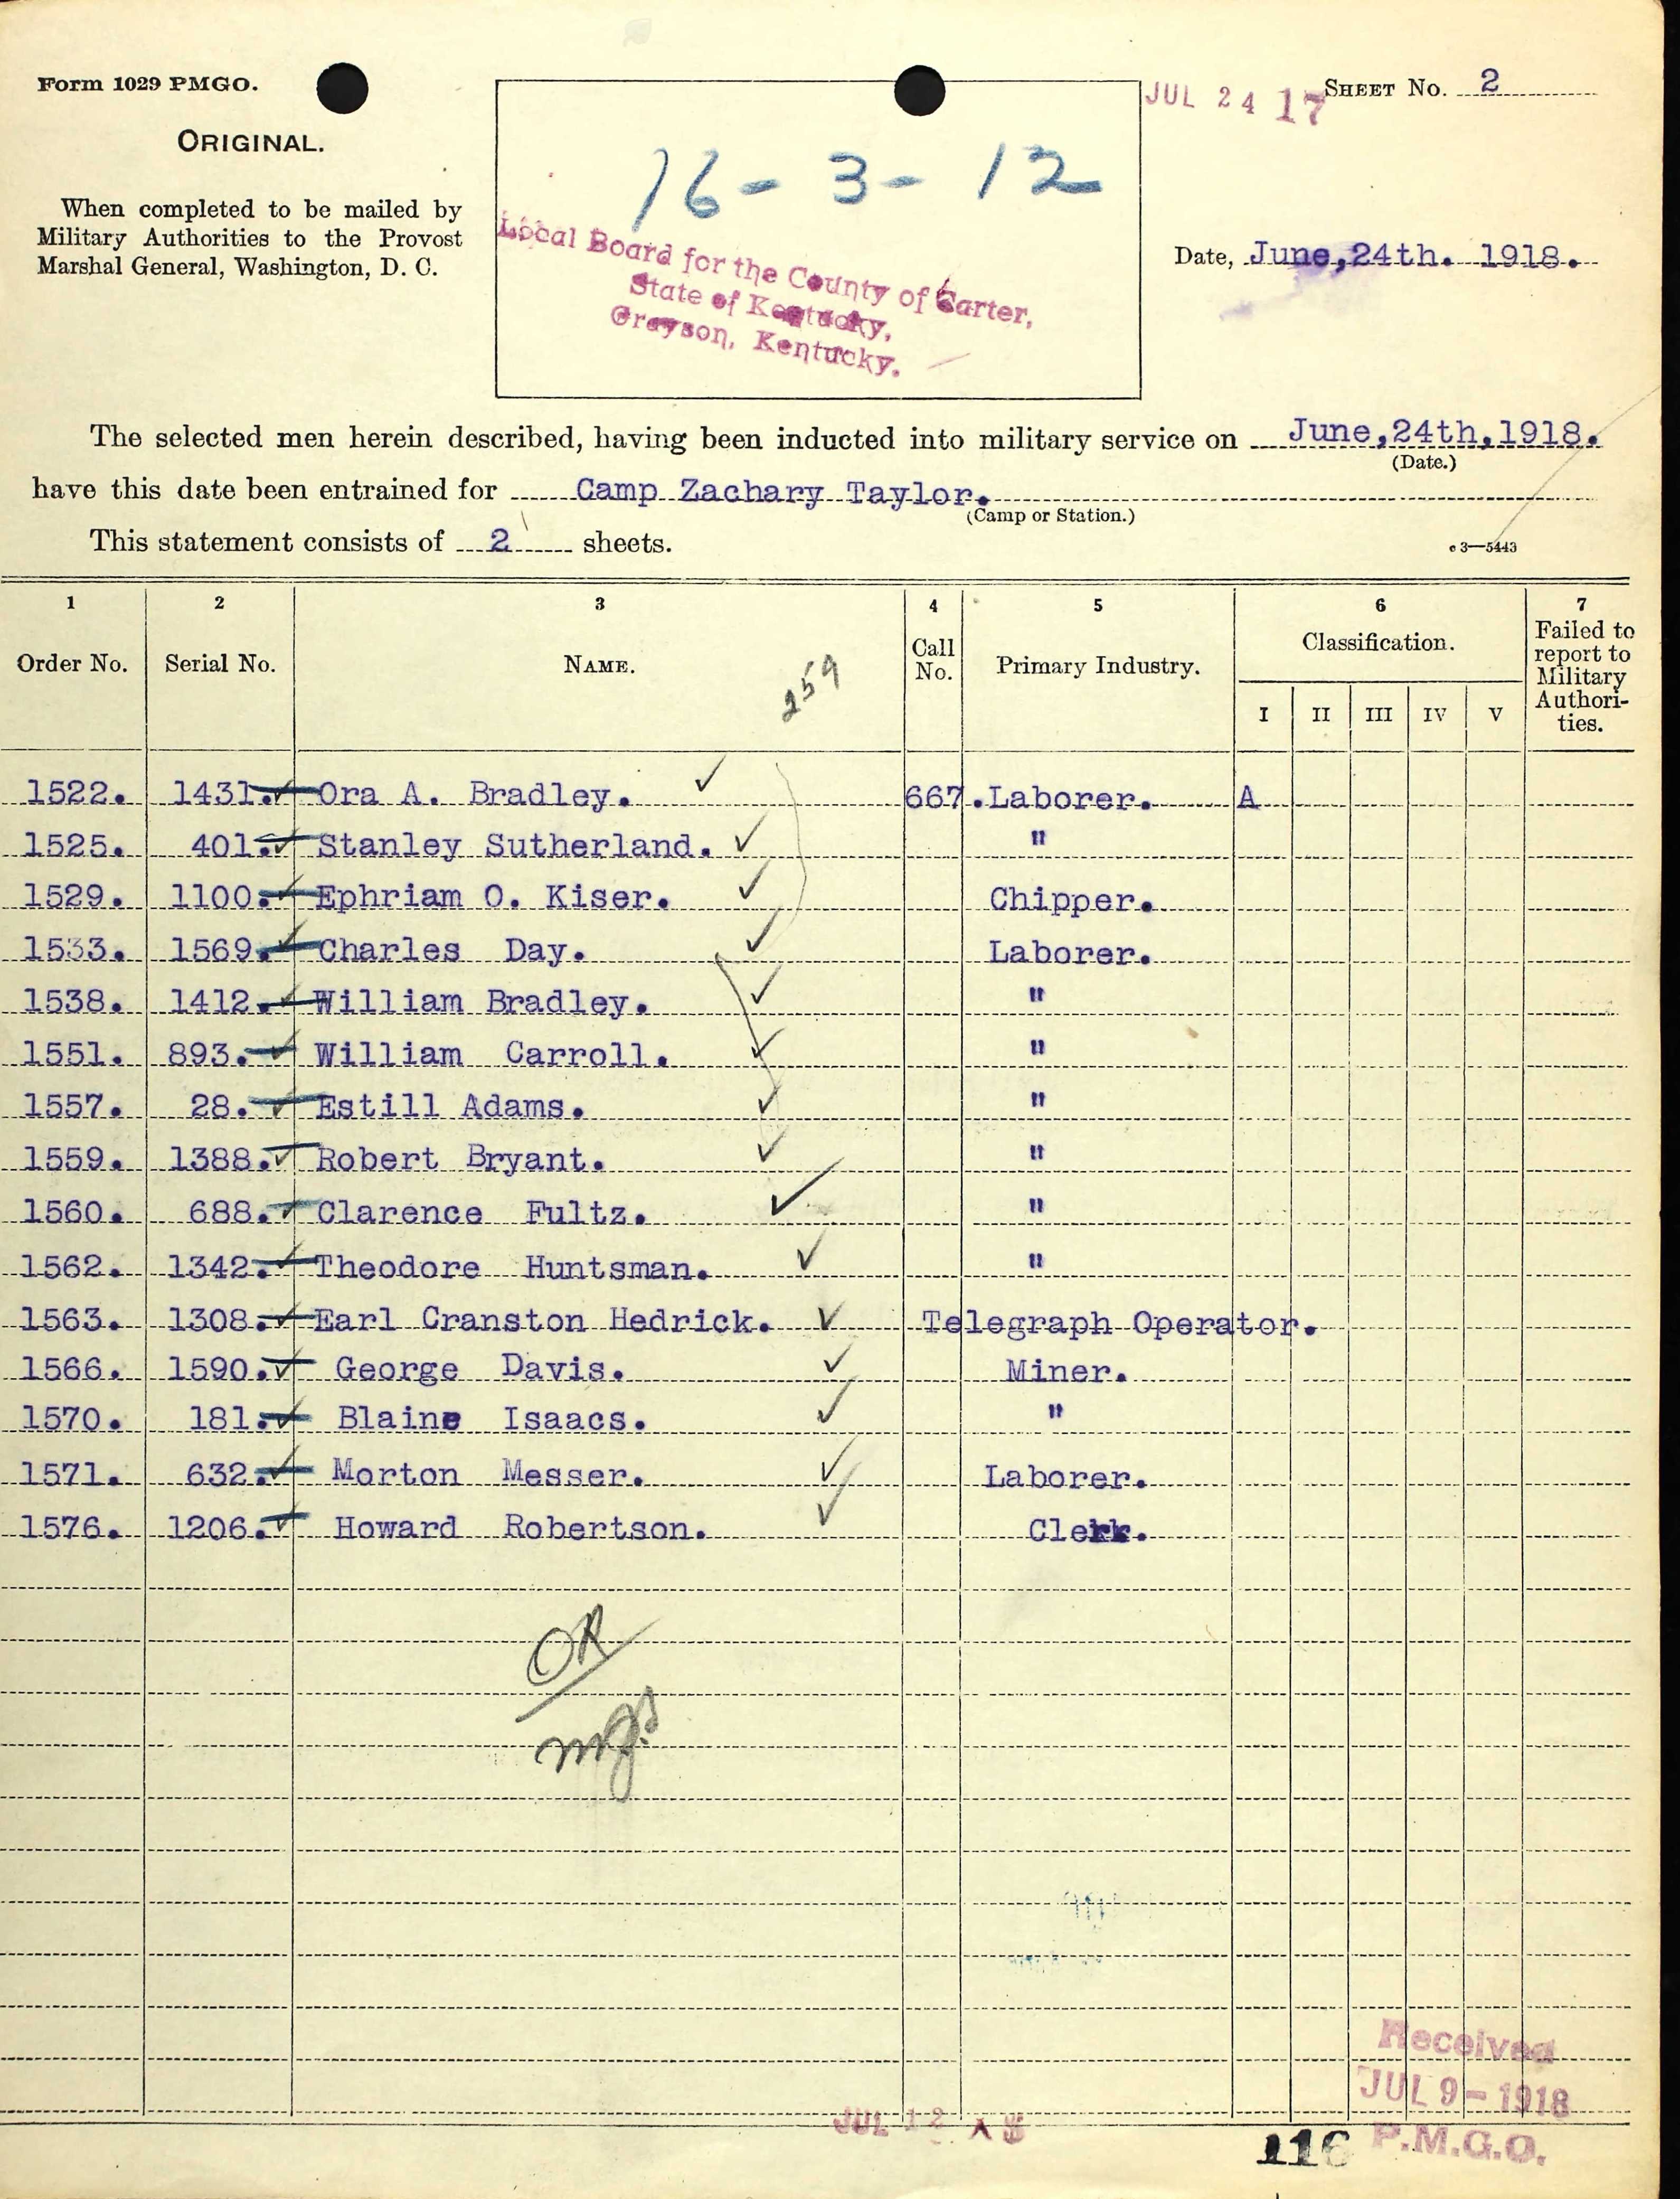 Form 1029 PMGO.
ORIGINAL.
When completed to be mailed by
Military Authorities to the Provost
Marshal General, Washington, D. C.
16 - 3 - 12
Local Board for the County of Carter,
State of Kentucky,
Grayson, Kentucky.
JUL 24 17
SHEET No. 2
Date, June,24th. 1918.
The selected men herein described, having been inducted into military service on June,24th,1918.
(Date.)
have this date been entrained for Camp Zachary Taylor.
(Camp or Station.)
This statement consists of 2 sheets.
c 3—5443
1 2 3 4 5 6 7
Order No. Serial No. NAME. Call No. Primary Industry. Classification. Failed to report to Military Authori- ties.
259
I II III IV V
1522. 1431. Ora A. Bradley. 667. Laborer. A
1525. 401. Stanley Sutherland. "
1529. 1100. Ephriam O. Kiser. Chipper.
1533. 1569. Charles Day. Laborer.
1538. 1412. William Bradley. "
1551. 893. William Carroll. "
1557. 28. Estill Adams. "
1559. 1388. Robert Bryant. "
1560. 688. Clarence Fultz. "
1562. 1342. Theodore Huntsman. "
1563. 1308. Earl Cranston Hedrick. Telegraph Operator.
1566. 1590. George Davis. Miner.
1570. 181. Blaine Isaacs. "
1571. 632. Morton Messer. Laborer.
1576. 1206. Howard Robertson. Clerk.
OK
Received
JUL 9 - 1918
P.M.G.O.
JUL 12
116